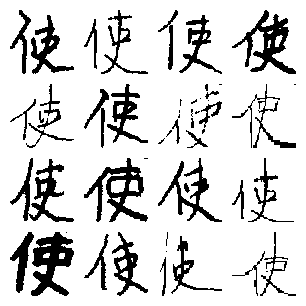 使使使使
使使使使
使使使使
使使使使